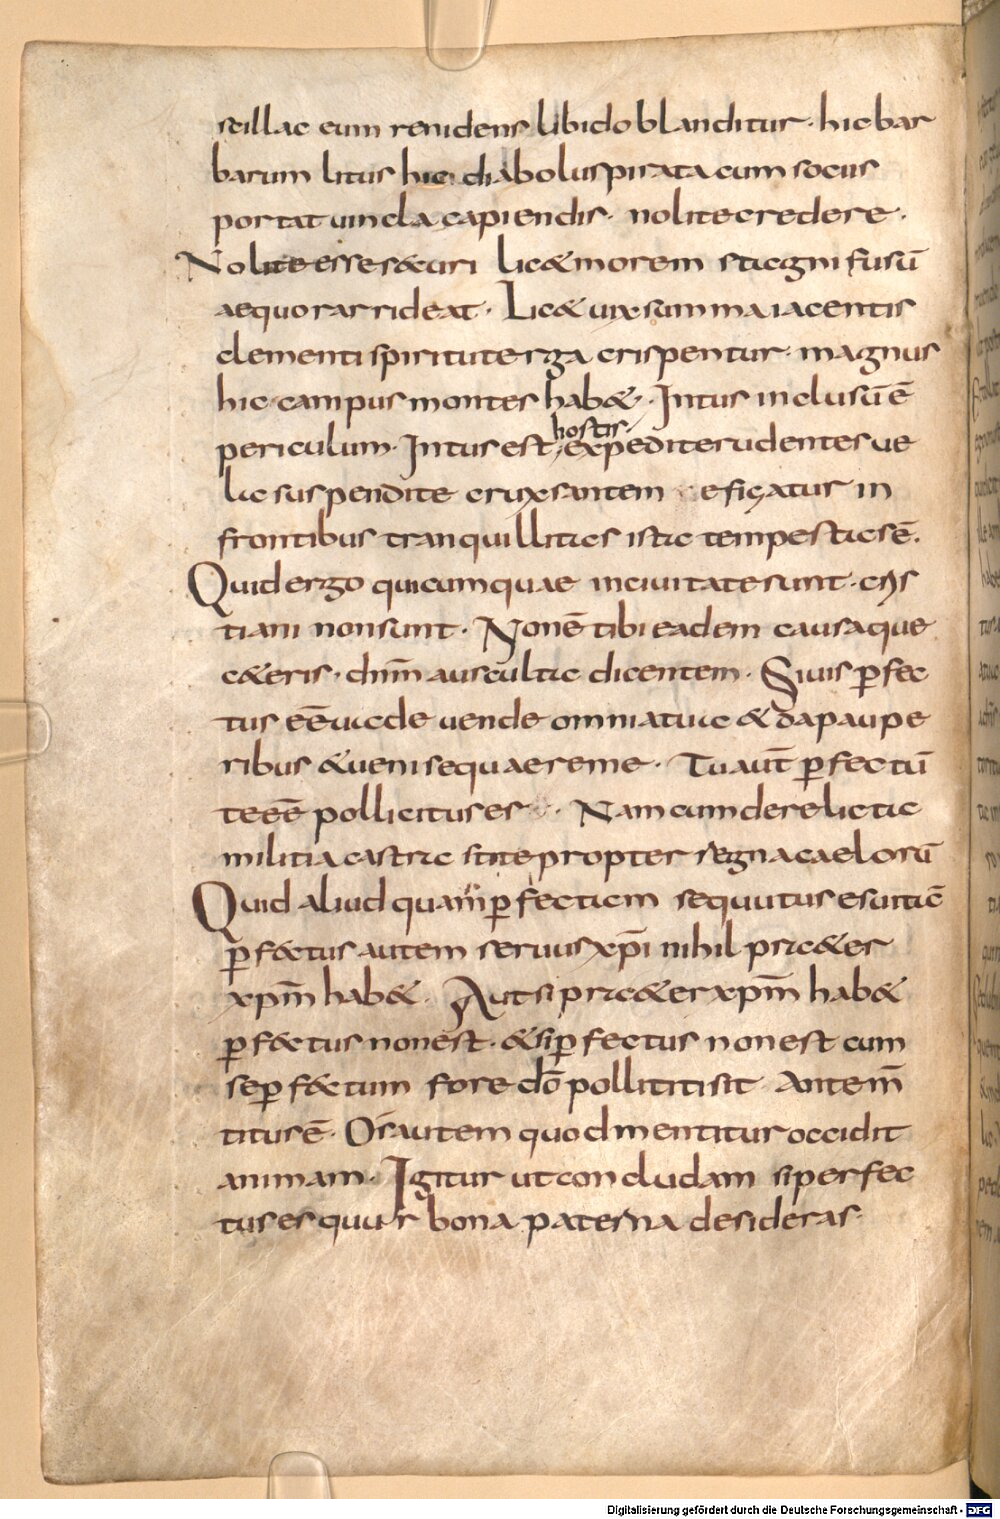 scillac eum renidens libido blanditur · hic bar
barum litus hic diabolus pirata cum sociis
portat uincla capiendis · nolite credere ·
Nolite esse s&curi lic& morem stagni fusū
aequor arrideat · Lic& uix summa iacentis
clementi spiritu terga crispentur · magnus
hic campus montes hab& · Intus inclusū ē
periculum · Intus est hostis · expedite rudentes ue
la suspendite crux antem efigatur in
frontibus tranquillitas ista tempestas ē ·
Quid ergo quicumquae in ciuitate sunt · chris
tiani non sunt · Non ē tibi eadem causa que
c&eris · dnm ausculta dicentem · Si uis ꝑfec
tus eē uade uende omnia tua & da paupe
ribus & ueni sequaere me · Tu aut̄ ꝑfectū
te eē pollicitus es · Nam cum derelicta
militia castra sti te propter regna caelorū
Quid aliud quam ꝑfectam sequutus es uitā
ꝑf&ctus autem seruus xpi nihil pra&er
xpm hab& · Aut si pra&er xpm hab&
ꝑf&ctus non est · & si ꝑfectus non est cum
se ꝑf&ctum fore dō pollititi sit Ante m̄
titur ē · Os autem quod mentitur occidit
animam · Igitur ut concludam si perfec
tus es quur bona paterna desideras ·
Digitalisierung gefördert durch die Deutsche Forschungsgemeinschaft - DFG